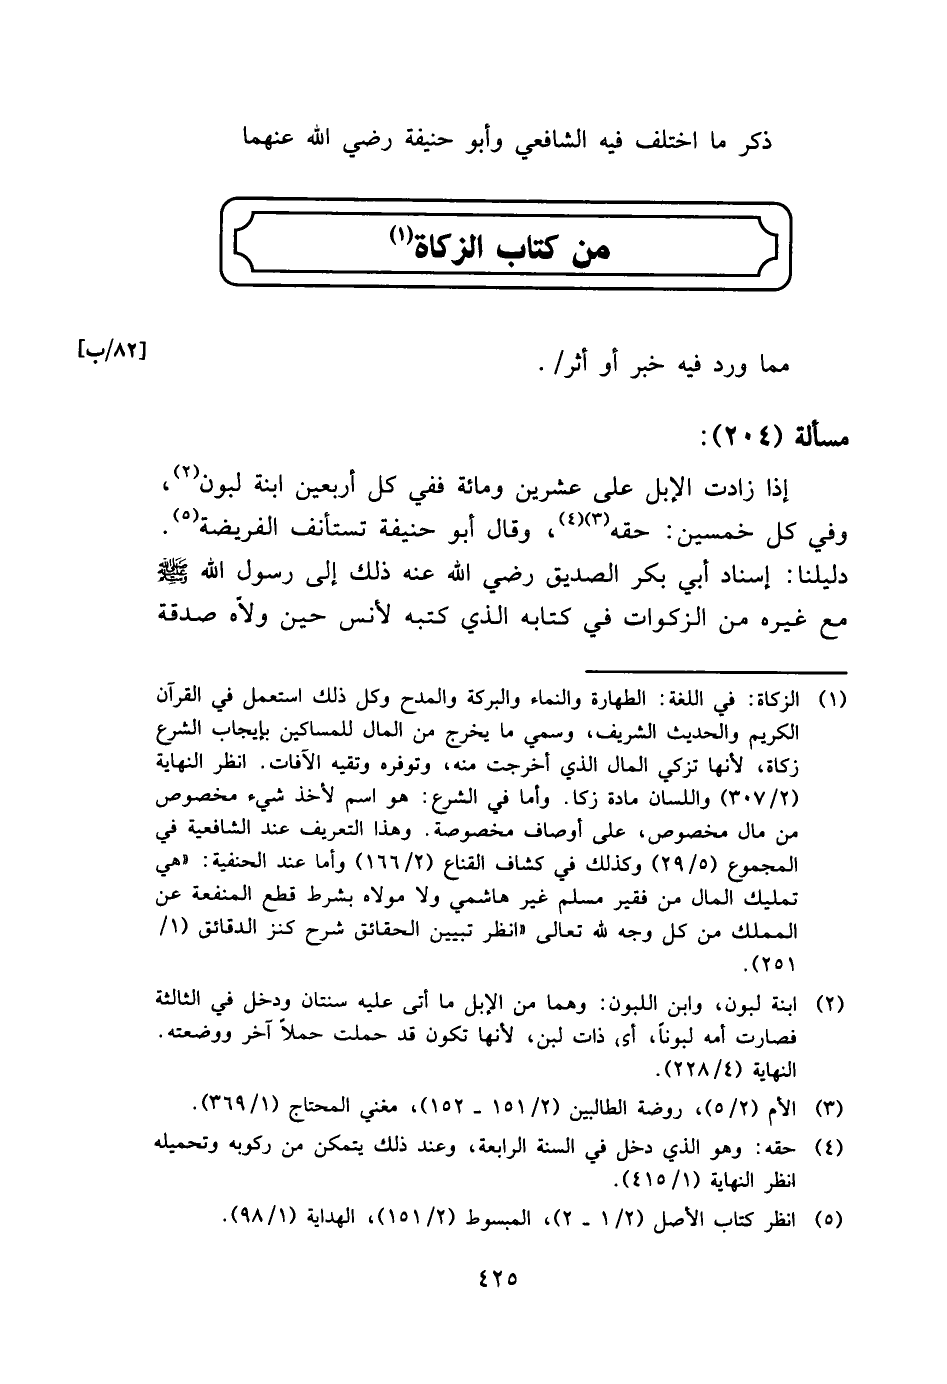 ذكر ما اختلف فيه الشافعي وأبو حنيفة رضي الله عنهما
من كتاب الزكاة(١)
مما ورد فيه خبر أو أثر/ .
[٨٢/ب]
مسألة (٢٠٤):
إذا زادت الإبل على عشرين ومائة ففي كل أربعين ابنة لبون(٢)،
وفي كل خمسين: حقه(٣)(٤)، وقال أبو حنيفة تستأنف الفريضة(٥).
دليلنا: إسناد أبي بكر الصديق رضي الله عنه ذلك إلى رسول الله ﷺ
مع غيره من الزكوات في كتابه الذي كتبه لأنس حين ولاّه صدقة
(١) الزكاة: في اللغة: الطهارة والنماء والبركة والمدح وكل ذلك استعمل في القرآن
الكريم والحديث الشريف، وسمي ما يخرج من المال للمساكين بإيجاب الشرع
زكاة، لأنها تزكي المال الذي أخرجت منه، وتوفره وتقيه الآفات. انظر النهاية
(٣٠٧/٢) واللسان مادة زكا. وأما في الشرع: هو اسم لأخذ شيء مخصوص
من مال مخصوص، على أوصاف مخصوصة. وهذا التعريف عند الشافعية في
المجموع (٢٩/٥) وكذلك في كشاف القناع (١٦٦/٢) وأما عند الحنفية: «هي
تمليك المال من فقير مسلم غير هاشمي ولا مولاه بشرط قطع المنفعة عن
المملك من كل وجه لله تعالى «انظر تبيين الحقائق شرح كنز الدقائق (١/
٢٥١).
(٢) ابنة لبون، وابن اللبون: وهما من الإبل ما أتى عليه سنتان ودخل في الثالثة
فصارت أمه لبوناً، أي ذات لبن، لأنها تكون قد حملت حملاً آخر ووضعته.
النهاية (٢٢٨/٤).
(٣) الأم (٥/٢)، روضة الطالبين (١٥١/٢ ـ ١٥٢)، مغني المحتاج (٣٦٩/١).
(٤) حقه: وهو الذي دخل في السنة الرابعة، وعند ذلك يتمكن من ركوبه وتحميله
انظر النهاية (٤١٥/١).
(٥) انظر كتاب الأصل (١/٢ ـ ٢)، المبسوط (١٥١/٢)، الهداية (٩٨/١).
٤٢٥